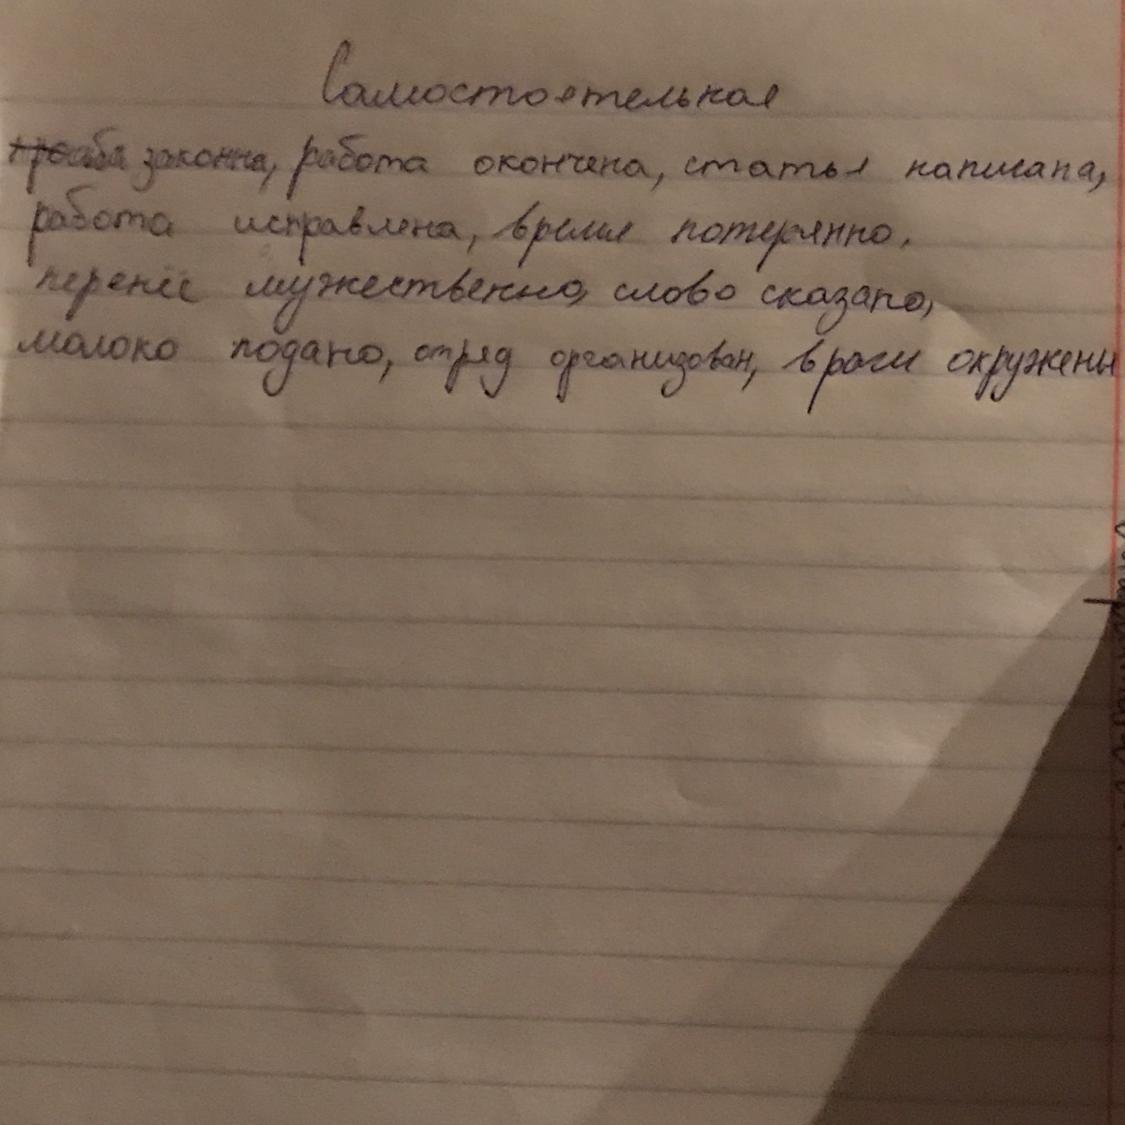 Самостоятельная
просьба законна, работа окончена, статья написана,
работа исправлена, время потерянно.
перенёс мужественно, слово сказано,
молоко подано, отряд организован, враги окружены